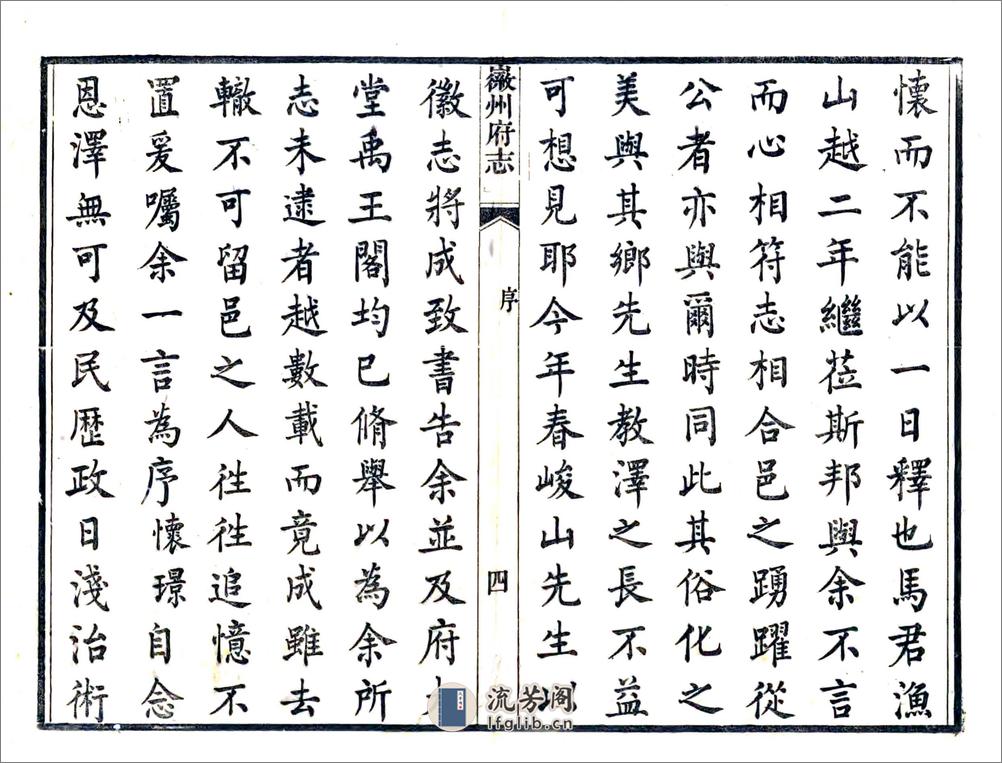 懷而不能以一日釋也馬君漁
山越二年繼莅斯邦與余不言
而心相符志相合邑之踴躍從
公者亦與爾時同此其俗化之
美與其鄉先生教澤之長不益
可想見耶今年春峻山先生以
徽州府志
序
四
徽志將成致書告余並及府
堂禹王閣均已脩舉以為余所
志未逮者越數載而竟成雖去
轍不可留邑之人徃徃追憶不
置爰囑余一言為序懷璟自念
恩澤無可及民歴政日淺治術
流芳阁
lfglib.cn